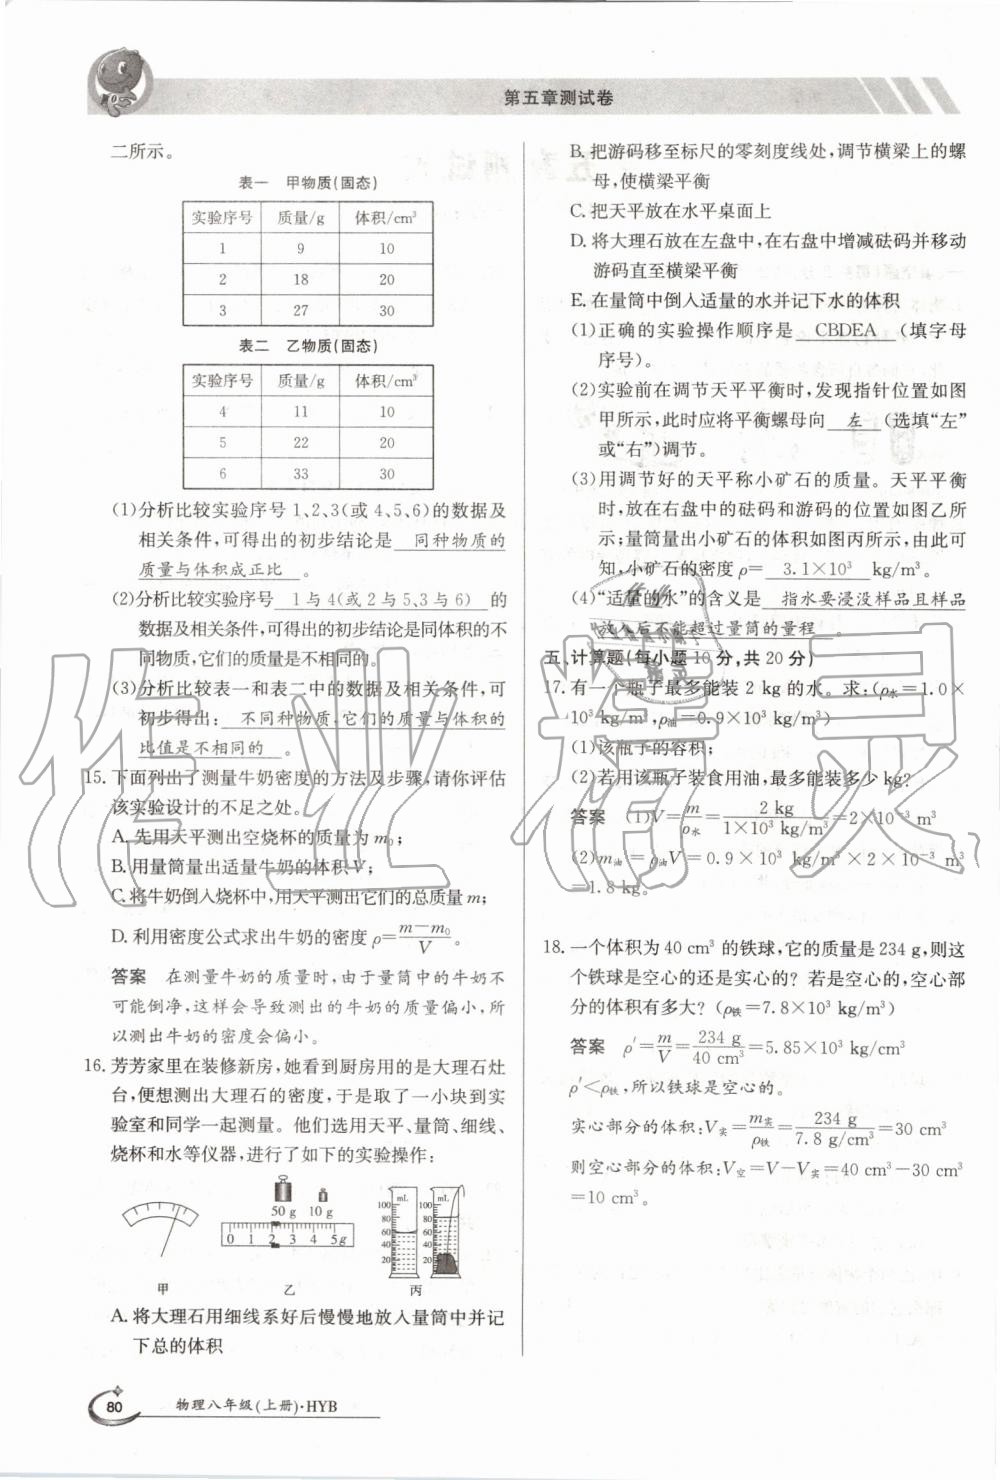 第五章测试卷
二所示。
表一 甲物质(固态)
实验序号 质量/g 体积/cm³
1 9 10
2 18 20
3 27 30
表二 乙物质(固态)
实验序号 质量/g 体积/cm³
4 11 10
5 22 20
6 33 30
(1)分析比较实验序号1、2、3(或4、5、6)的数据及
相关条件,可得出的初步结论是 同种物质的
质量与体积成正比 。
(2)分析比较实验序号 1与4(或2与5、3与6) 的
数据及相关条件,可得出的初步结论是同体积的不
同物质,它们的质量是不相同的。
(3)分析比较表一和表二中的数据及相关条件,可
初步得出: 不同种物质,它们的质量与体积的
比值是不相同的 。
15. 下面列出了测量牛奶密度的方法及步骤,请你评估
该实验设计的不足之处。
A. 先用天平测出空烧杯的质量为m₀;
B. 用量筒量出适量牛奶的体积V;
C. 将牛奶倒入烧杯中,用天平测出它们的总质量m;
D. 利用密度公式求出牛奶的密度ρ=(m-m₀)/V。
答案 在测量牛奶的质量时,由于量筒中的牛奶不
可能倒净,这样会导致测出的牛奶的质量偏小,所
以测出牛奶的密度会偏小。
16. 芳芳家里在装修新房,她看到厨房用的是大理石灶
台,便想测出大理石的密度,于是取了一小块到实
验室和同学一起测量。他们选用天平、量筒、细线、
烧杯和水等仪器,进行了如下的实验操作:
50 g 10 g
0 1 2 3 4 5g
mL 100 80 60 40 20
mL 100 80 60 40 20
甲 乙 丙
A. 将大理石用细线系好后慢慢地放入量筒中并记
下总的体积
B. 把游码移至标尺的零刻度线处,调节横梁上的螺
母,使横梁平衡
C. 把天平放在水平桌面上
D. 将大理石放在左盘中,在右盘中增减砝码并移动
游码直至横梁平衡
E. 在量筒中倒入适量的水并记下水的体积
(1)正确的实验操作顺序是 CBDEA (填字母
序号)。
(2)实验前在调节天平平衡时,发现指针位置如图
甲所示,此时应将平衡螺母向 左 (选填“左”
或“右”)调节。
(3)用调节好的天平称小矿石的质量。天平平衡
时,放在右盘中的砝码和游码的位置如图乙所
示;量筒量出小矿石的体积如图丙所示,由此可
知,小矿石的密度ρ= 3.1×10³ kg/m³。
(4)“适量的水”的含义是 指水要浸没样品且样品
放入后不能超过量筒的量程 。
五、计算题(每小题10分,共20分)
17. 有一个瓶子最多能装2 kg的水。求:(ρ水=1.0×
10³ kg/m³,ρ油=0.9×10³ kg/m³)
(1)该瓶子的容积;
(2)若用该瓶子装食用油,最多能装多少kg?
答案 (1)V=m/ρ水=2 kg/(1×10³ kg/m³)=2×10⁻³ m³
(2)m油=ρ油V=0.9×10³ kg/m³×2×10⁻³ m³
=1.8 kg。
18. 一个体积为40 cm³的铁球,它的质量是234 g,则这
个铁球是空心的还是实心的?若是空心的,空心部
分的体积有多大?(ρ铁=7.8×10³ kg/m³)
答案 ρ′=m/V=234 g/40 cm³=5.85×10³ kg/cm³
ρ′<ρ铁,所以铁球是空心的。
实心部分的体积:V实=m实/ρ铁=234 g/(7.8 g/cm³)=30 cm³
则空心部分的体积:V空=V-V实=40 cm³-30 cm³
=10 cm³。
80 物理八年级(上册)·HYB
作业精灵